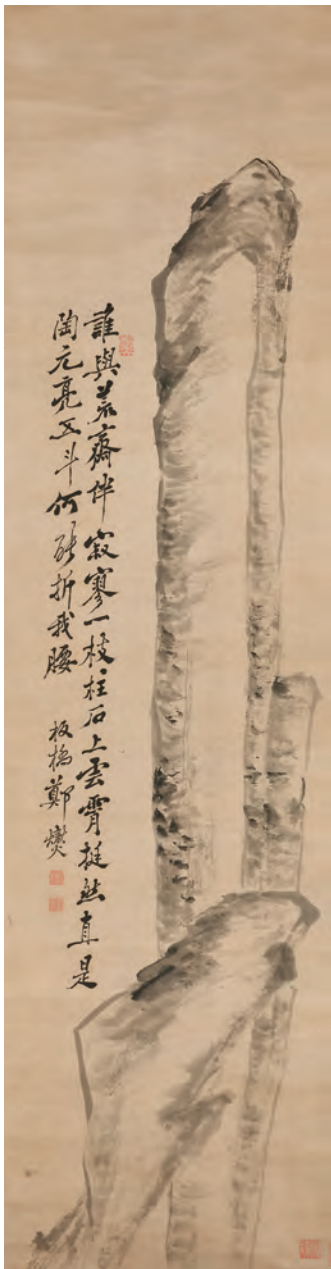 誰與荒齋伴寂寥一枝柱石上雲霄挺然直是
陶元亮五斗何能折我腰 板橋鄭燮